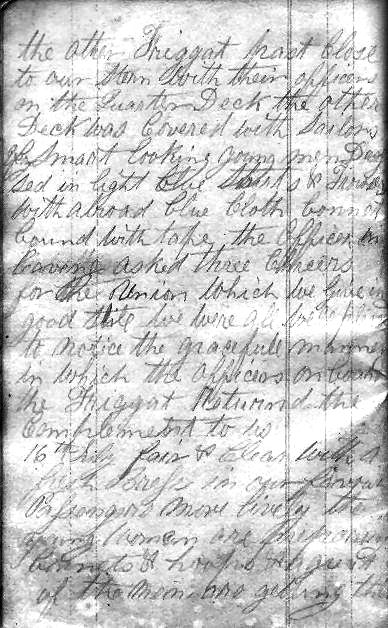 the other Friggat past Close
to our Stern with their officers
on the Quarter Deck the other
Deck was Covered with Sailors
all Smart looking young men Dres
sed in light Blue Shirts & Trowse
with abroad blue Cloth Bonnet
bound with tape, the Officer on
leaving asked three Cheers
for the Union Which we Give in
good Stile We were all
to notice the gracefull manner
in which the officers on board
the Friggat Returnd the
Complement to us
16th day fair & Clear with a
fresh Breese in our favour
Passangers more lively the
young woman are
Bonnets & hoops
of the men are getting the